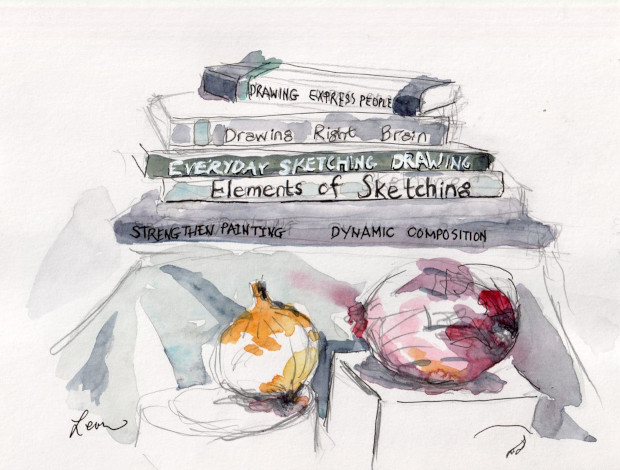 DRAWING EXPRESS PEOPLE
Drawing Right Brain
EVERYDAY SKETCHING DRAWING
Elements of Sketching
STRENGTHEN PAINTING DYNAMIC COMPOSITION